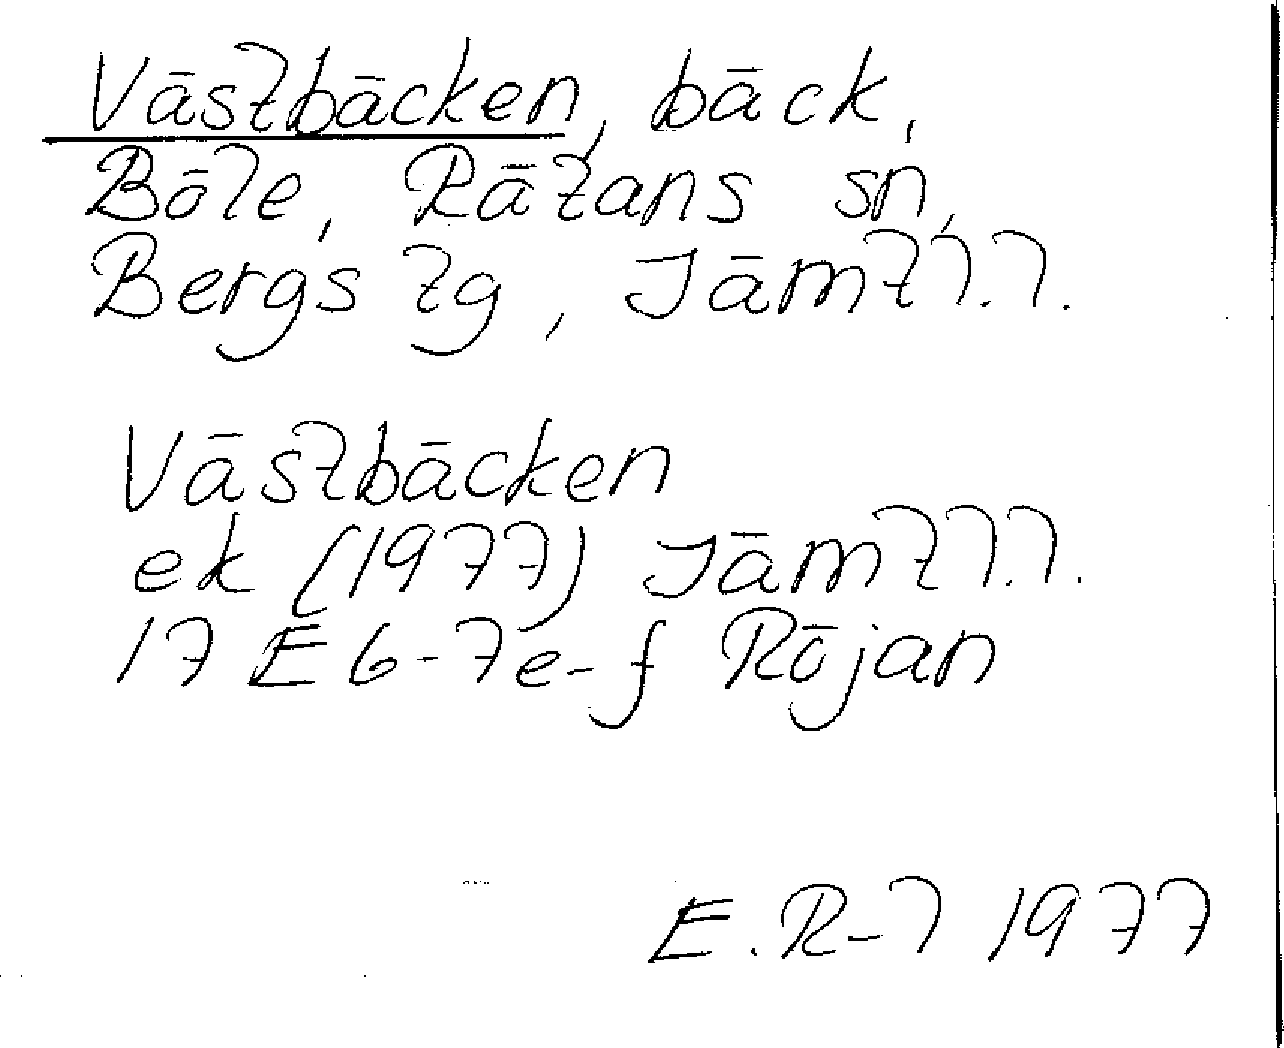 Västbäcken, bäck,
Böle, Rätans sn,
Bergs tg, Jämtl.l.
Västbäcken
ek (1977) Jämtl.l.
17 E 6-7e-f Röjan
E.R-l 1977